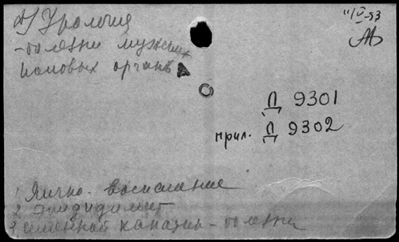 Урология
- болезни мужских
половых органов
"/IV-53
Д 9301
прил. Д 9302
1 Яичко - воспаление
2 Эпидидимит
3 Семенной канатик - болезни